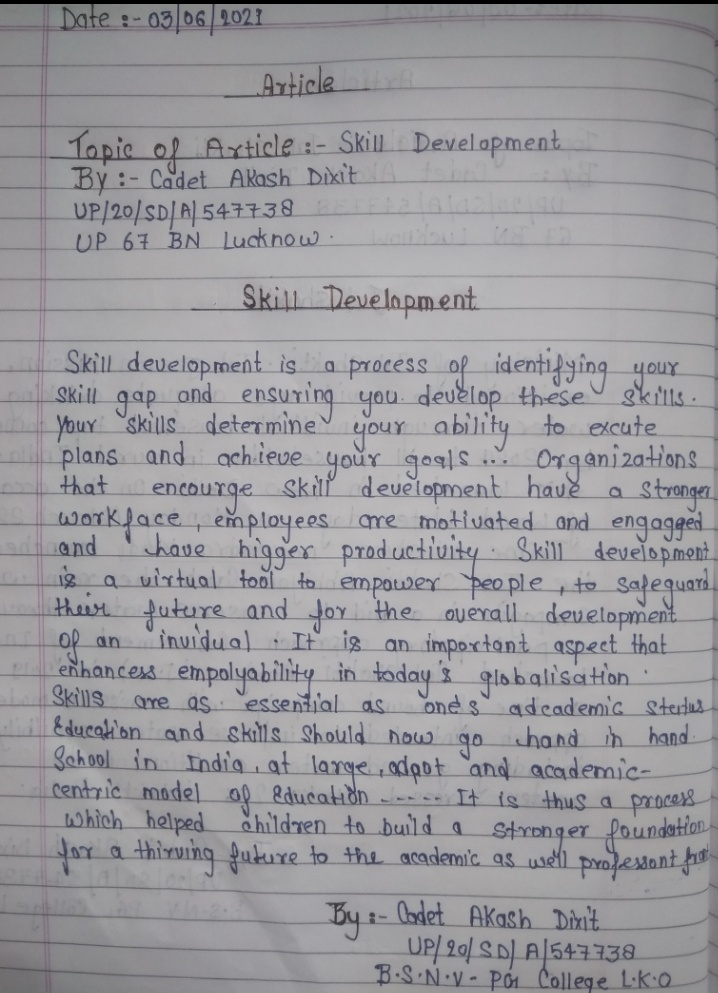 Date :- 03/06/2021
Article
Topic of Article :- Skill Development
By :- Cadet Akash Dixit
UP/20/SD/A/547738
UP 67 BN Lucknow.
Skill Development
Skill development is a process of identifying your
skill gap and ensuring you develop these skills.
Your skills determine your ability to excute
plans and achieve your goals ... Organizations
that encourge skill development have a stronger
workface, employees are motivated and engagged
and have higger productivity. Skill development
is a virtual tool to empower people, to safeguard
their future and for the overall development
of an inuidual. It is an important aspect that
enhancess empolyability in today's globalisation.
Skills are as essential as one's adcademic status
Education and skills should now go hand in hand.
School in India, at large, adpot and academic-
centric model of education ----- It is thus a process
which helped children to build a stronger foundation
for a thirving future to the academic as well
By :- Cadet Akash Dixit
UP/20/SD/A/547738
B.S.N.V - PG College L.K.O